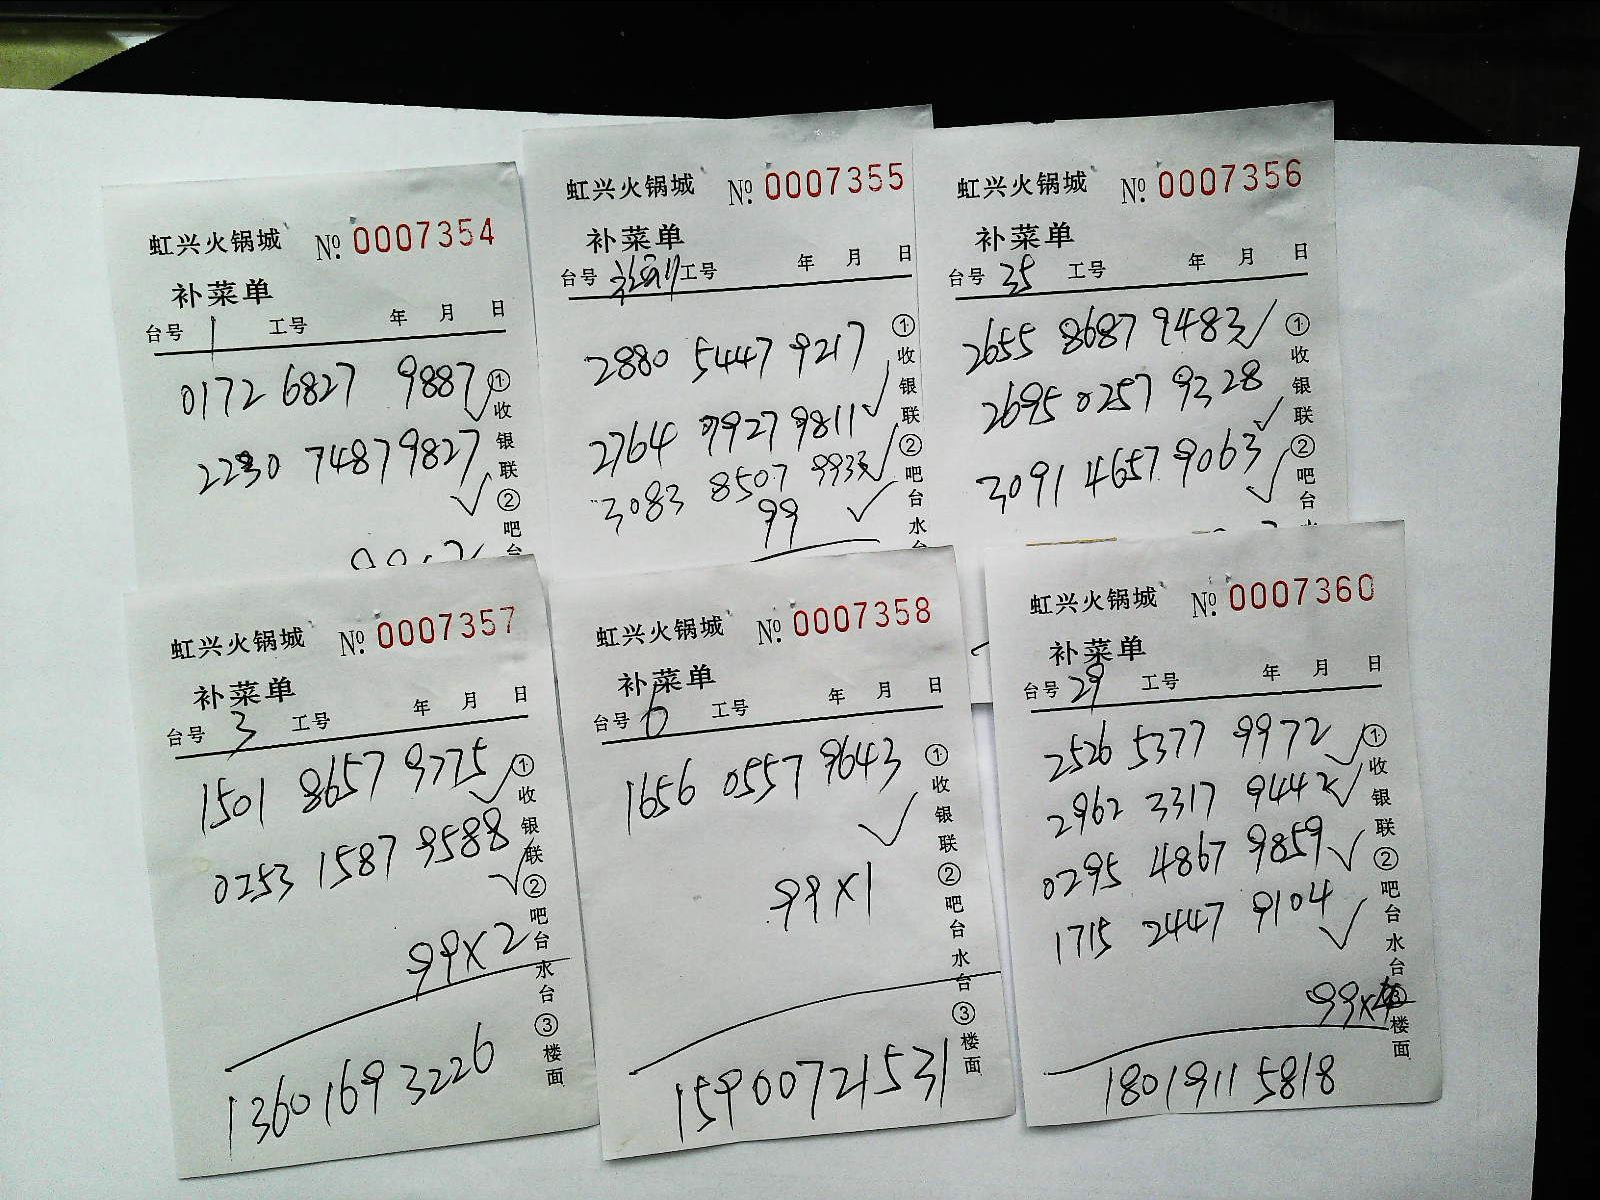 虹兴火锅城 No. 0007354
补菜单
台号 1 工号 年 月 日
0172 6827 9887
2230 7487 9827
①收银联②吧台
虹兴火锅城 No. 0007355
补菜单
台号 工号 年 月 日
2880 5447 9217
2764 7927 9811
3083 8507 9933
99
①收银联②吧台水台
虹兴火锅城 No. 0007356
补菜单
台号 35 工号 年 月 日
2655 8687 9483
2695 0257 9328
3091 4657 9063
①收银联②吧台
虹兴火锅城 No. 0007357
补菜单
台号 3 工号 年 月 日
1501 8657 9775
0253 1587 9588
99×2
13601693226
①收银联②吧台水台③楼面
虹兴火锅城 No. 0007358
补菜单
台号 6 工号 年 月 日
1656 0557 9643
99×1
15900721531
①收银联②吧台水台③楼面
虹兴火锅城 No. 0007360
补菜单
台号 29 工号 年 月 日
2526 5377 9972
2962 3317 9442
0295 4867 9859
1715 2447 9104
99×4
18019115818
①收银联②吧台水台③楼面